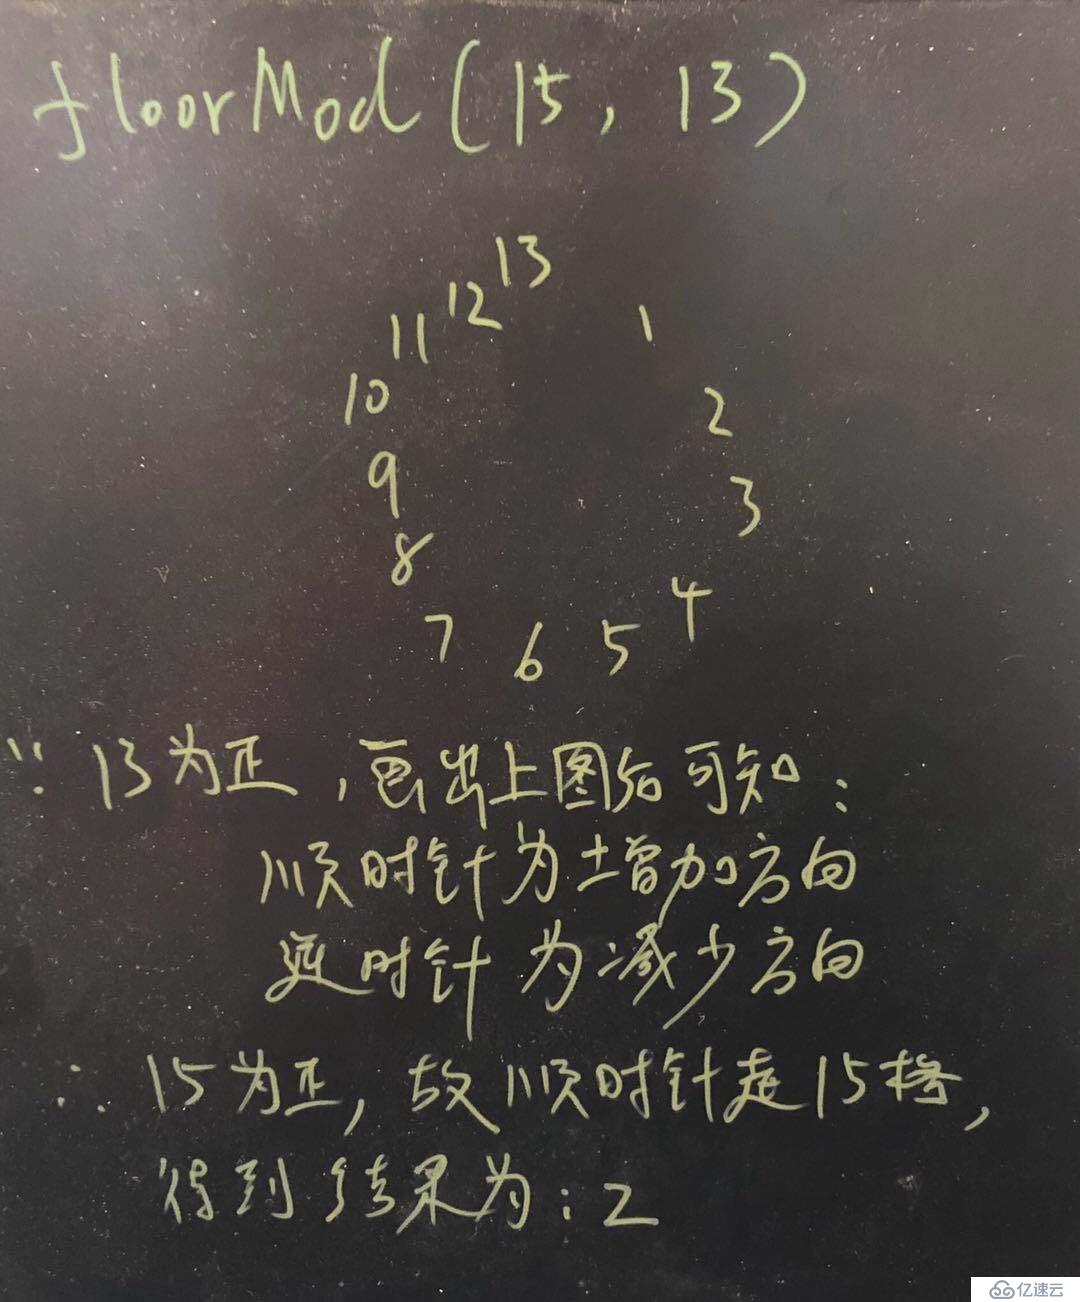 floorMod(15, 13)
13
12
11
1
10
2
9
3
8
4
7
6
5
∵ 13为正，画出上图后可知：
顺时针为增加方向
逆时针为减少方向
∴ 15为正，故顺时针走15格，
得到结果为：2
亿速云